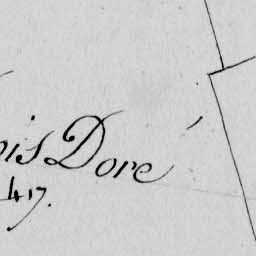 ois Doré
417.